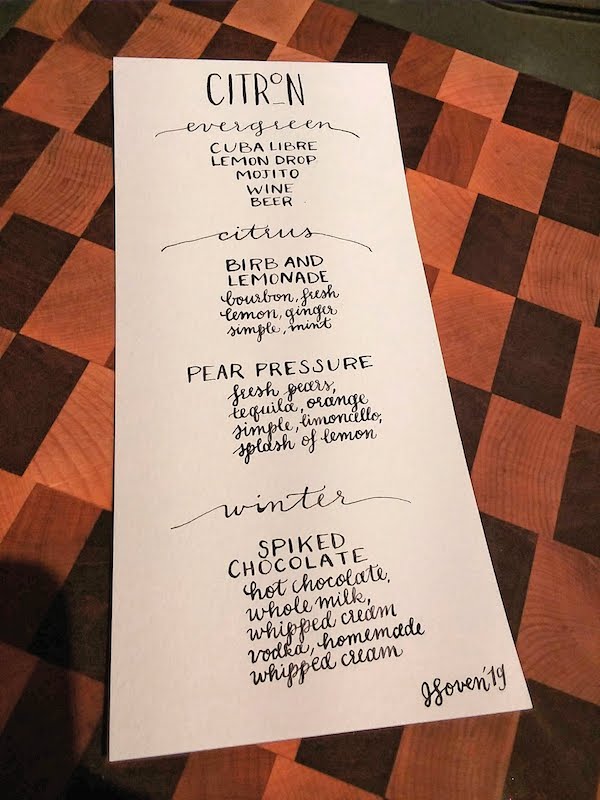 CITRON
evergreen
CUBA LIBRE
LEMON DROP
MOJITO
WINE
BEER
citrus
BIRB AND
LEMONADE
bourbon, fresh
lemon, ginger
simple, mint
PEAR PRESSURE
fresh pears,
tequila, orange
simple, limoncello,
splash of lemon
winter
SPIKED
CHOCOLATE
hot chocolate,
whole milk,
whipped cream
vodka, homemade
whipped cream
JSoven'19